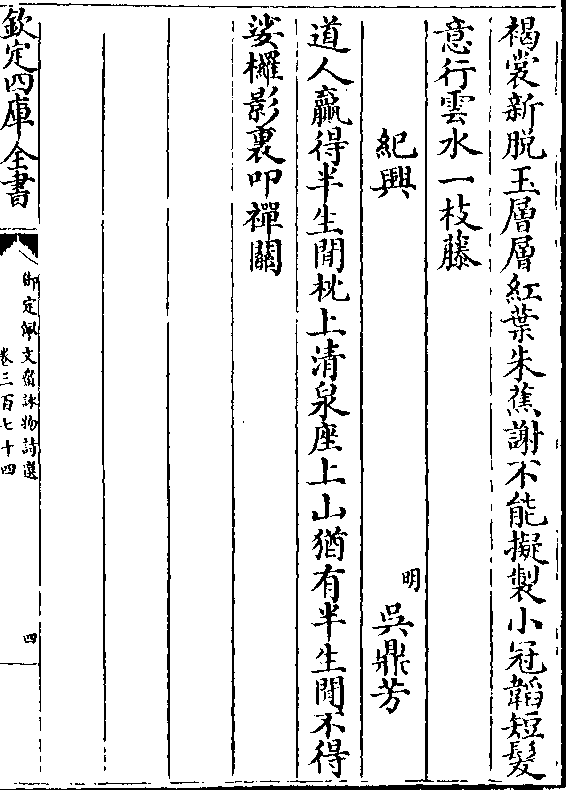 褐裳新脱玉層層紅葉朱蕉謝不能擬製小冠韜短髮
意行雲水一枝藤
紀興
明 吳鼎芳
道人贏得半生閒枕上清泉座上山猶有半生閒不得
娑欏影裏叩禪關
欽定四庫全書
御定佩文齋詠物詩選
卷三百七十四
四